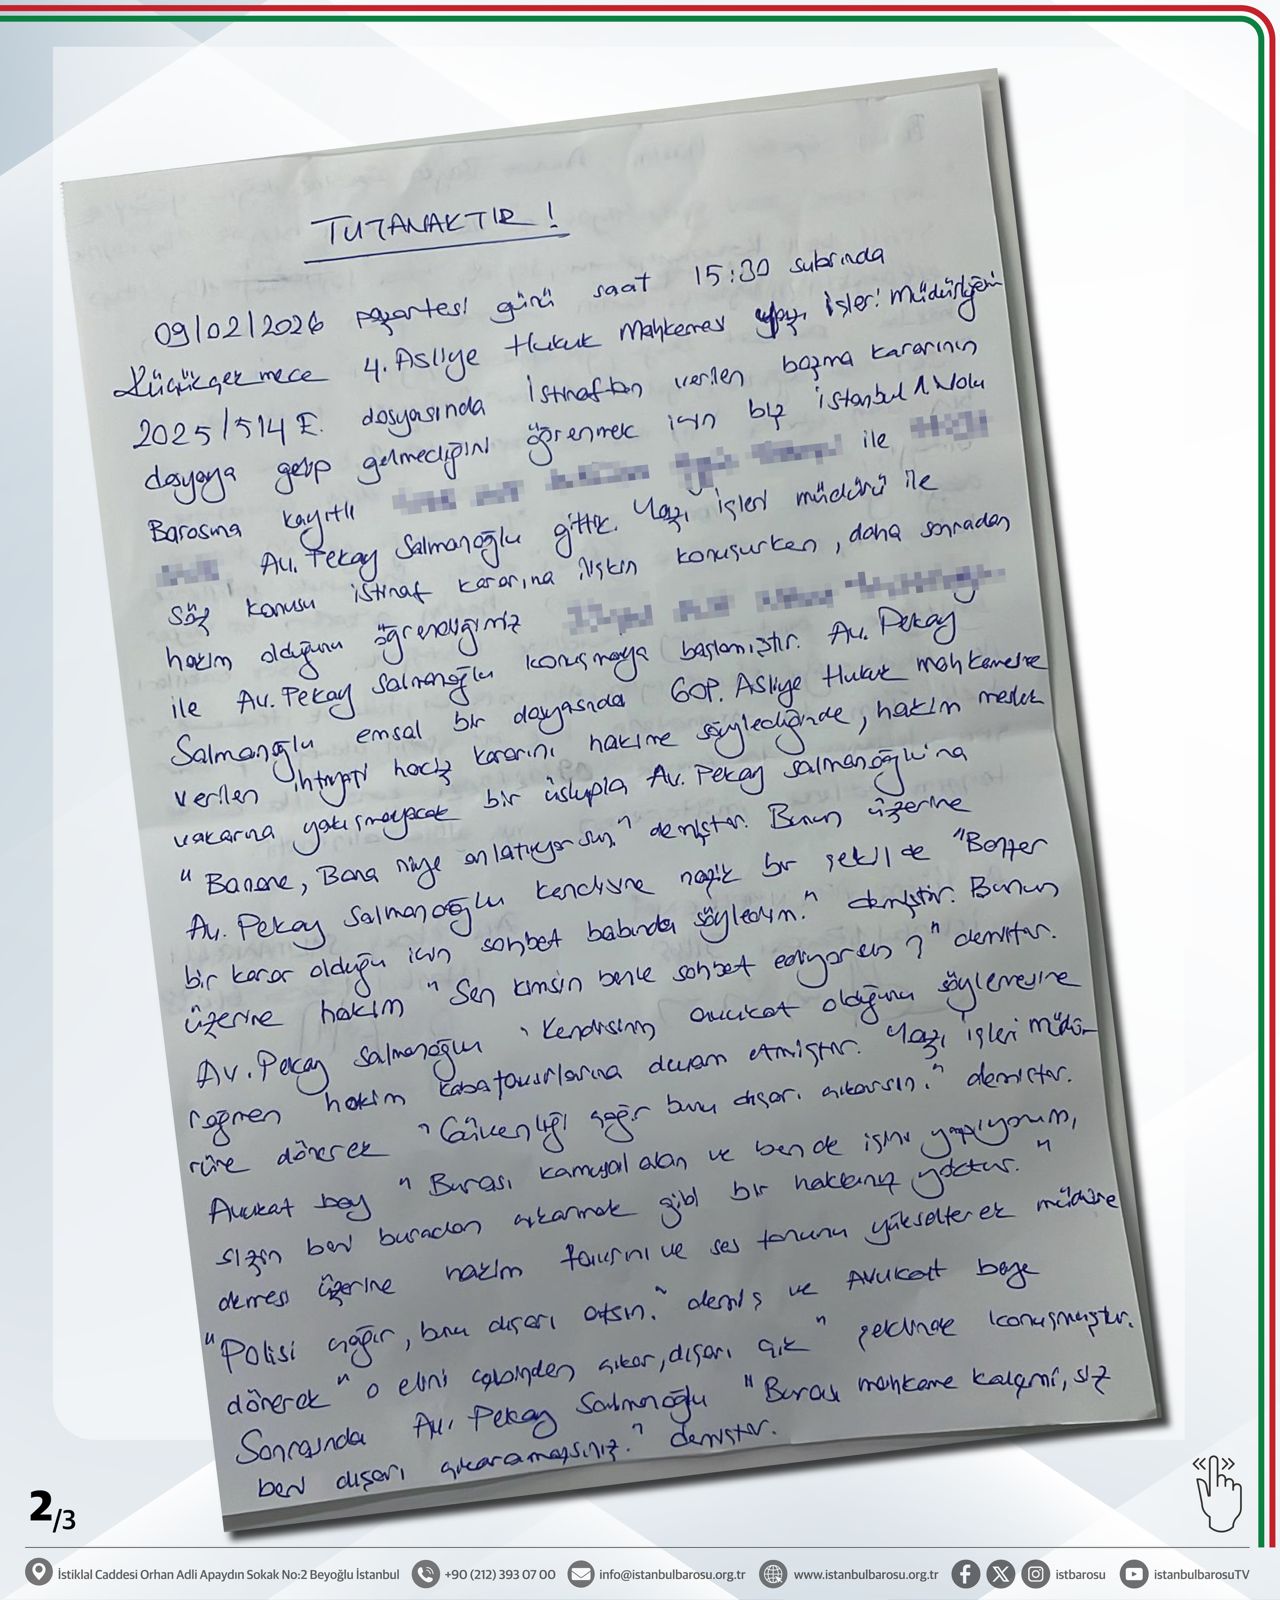 TUTANAKTIR!
09/02/2026 pazartesi günü saat 15:30 sularında
Küçükçekmece 4. Asliye Hukuk Mahkemesi yazı işleri müdürlüğünün
2025/514 E. dosyasında İstinaftan verilen bozma kararının
dosyaya gelip gelmediğini öğrenmek için biz İstanbul 1 Nolu
Barosuna kayıtlı ile
Av. Pekay Salmanoğlu gittik. Yazı işleri müdürü ile
söz konusu istinaf kararına ilişkin konuşurken, daha sonradan
hakim olduğunu öğrendiğimiz
ile Av. Pekay Salmanoğlu konuşmaya başlamıştır. Av. Pekay
Salmanoğlu emsal bir dosyasında GOP. Asliye Hukuk mahkemesine
verilen ihtiyati haciz kararını hakime söylediğinde, hakim meslek
vakarına yakışmayacak bir üslupla Av. Pekay Salmanoğlu'na
"Banane, Bana niye anlatıyorsun," demiştir. Bunun üzerine
Av. Pekay Salmanoğlu kendisine nazik bir şekilde "Benzer
bir karar olduğu için sohbet babında söyledim." demiştir. Bunun
üzerine hakim "Sen kimsin benle sohbet ediyorsun?" demiştir.
Av. Pekay Salmanoğlu kendisinin avukat olduğunu söylemesine
rağmen hakim kaba tavırlarına devam etmiştir. Yazı işleri müdü-
rüne dönerek "Güvenliği çağır bunu dışarı çıkarsın." demiştir.
Avukat bey "Burası kamusal alan ve ben de işimi yapıyorum,
sizin beni buradan çıkarmak gibi bir hakkınız yoktur."
demesi üzerine hakim tavrını ve ses tonunu yükselterek müdüre
"Polisi çağır, bunu dışarı atsın." demiş ve Avukat beye
dönerek "o elini cebinden çıkar, dışarı çık" şeklinde konuşmuştur.
Sonrasında Av. Pekay Salmanoğlu "Burası mahkeme kalemi, siz
beni dışarı çıkaramazsınız." demiştir.
2/3
İstiklal Caddesi Orhan Adli Apaydın Sokak No:2 Beyoğlu İstanbul +90 (212) 393 07 00 info@istanbulbarosu.org.tr www.istanbulbarosu.org.tr istbarosu istanbulbarosuTV